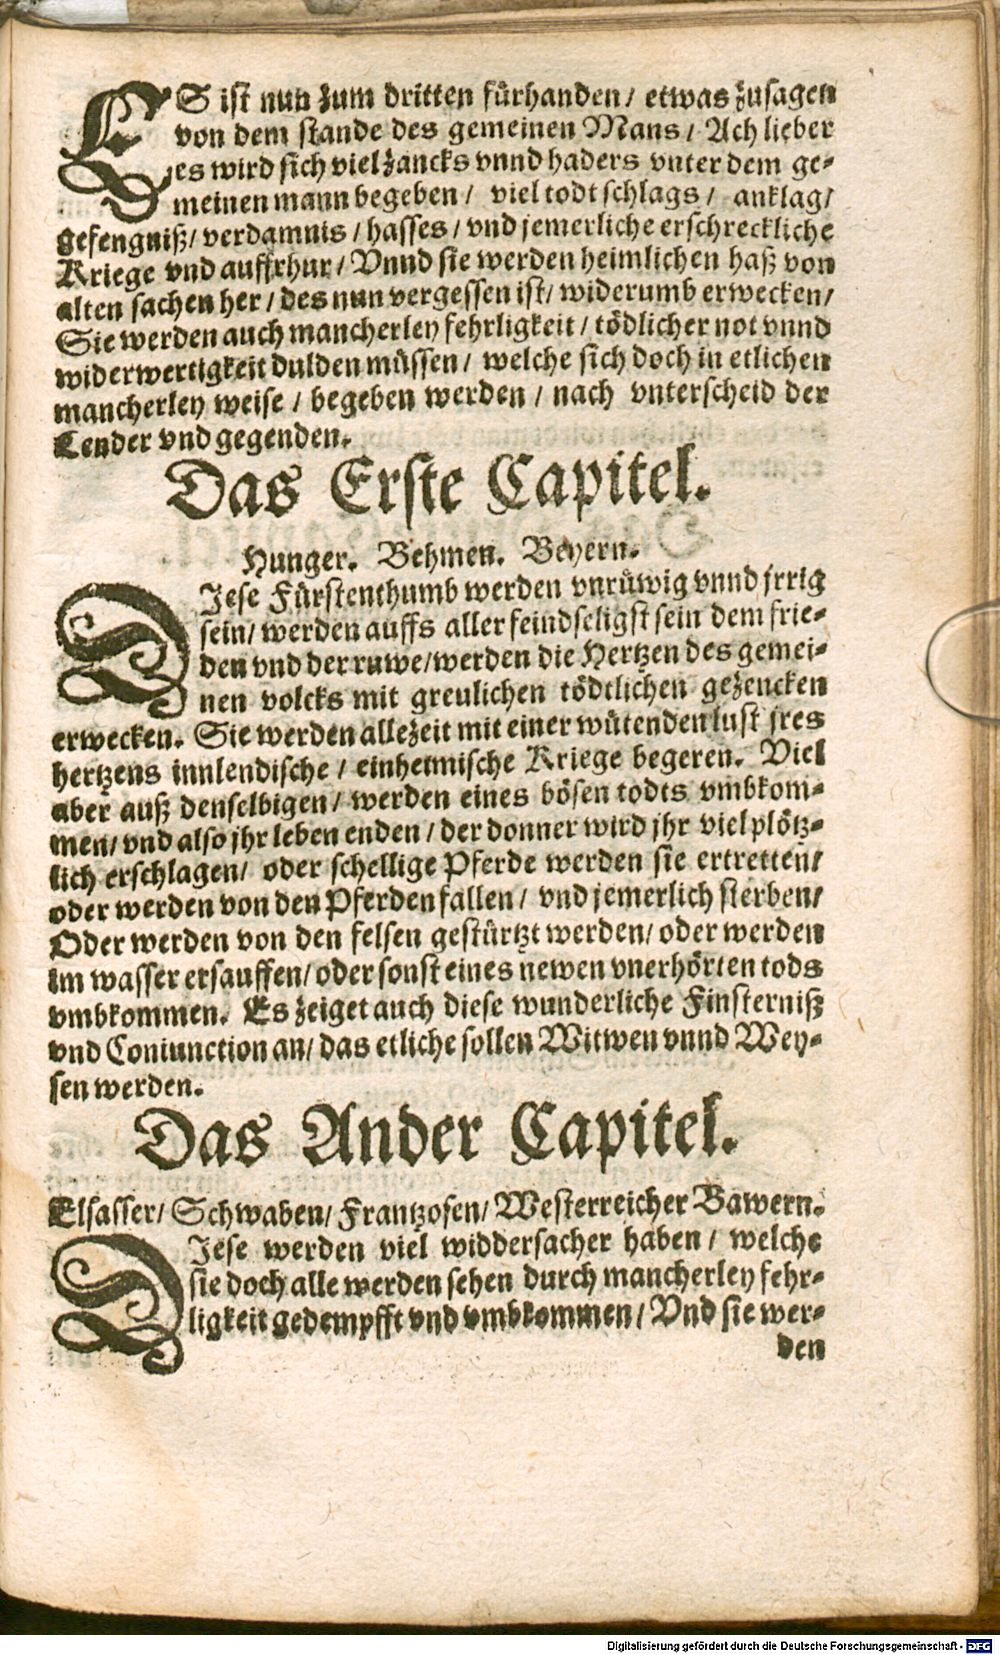 ES ist nun zum dritten fürhanden/ etwas zusagen
von dem stande des gemeinen Mans/ Ach lieber
es wird sich viel zancks vnnd haders vnter dem ge-
meinen mann begeben/ viel todt schlags/ anklag/
gefengniß/ verdamnis/ hasses/ vnd jemerliche erschreckliche
Kriege vnd auffrhur/ Vnnd sie werden heimlichen haß von
alten sachen her/ des nun vergessen ist/ widerumb erwecken/
Sie werden auch mancherley fehrligkeit/ tödlicher not vnnd
widerwertigkeit dulden müssen/ welche sich doch in etlichen
mancherley weise/ begeben werden/ nach vnterscheid der
Lender vnd gegenden.
Das Erste Capitel.
Hunger. Behmen. Beyern.
DIese Fürstenthumb werden vnrüwig vnnd jrrig
sein/ werden auffs aller feindseligst sein dem frie-
den vnd der ruwe/ werden die Hertzen des gemei-
nen volcks mit greulichen tödtlichen gezencken
erwecken. Sie werden allezeit mit einer wütenden lust jres
hertzens innlendische/ einheimische Kriege begeren. Viel
aber auß denselbigen/ werden eines bösen todts vmbkom-
men/ vnd also jhr leben enden/ der donner wird jhr viel plötz-
lich erschlagen/ oder schellige Pferde werden sie ertretten/
oder werden von den Pferden fallen/ vnd jemerlich sterben/
Oder werden von den felsen gestürtzt werden/ oder werden
im wasser ersauffen/ oder sonst eines newen vnerhörten tods
vmbkommen. Es zeiget auch diese wunderliche Finsterniß
vnd Coniunction an/ das etliche sollen Witwen vnnd Wey-
sen werden.
Das Ander Capitel.
Elsasser/ Schwaben/ Frantzosen/ Westerreicher Bawern.
DIese werden viel widdersacher haben/ welche
sie doch alle werden sehen durch mancherley fehr-
ligkeit gedempfft vnd vmbkommen/ Vnd sie wer-
den
Digitalisierung gefördert durch die Deutsche Forschungsgemeinschaft - DFG